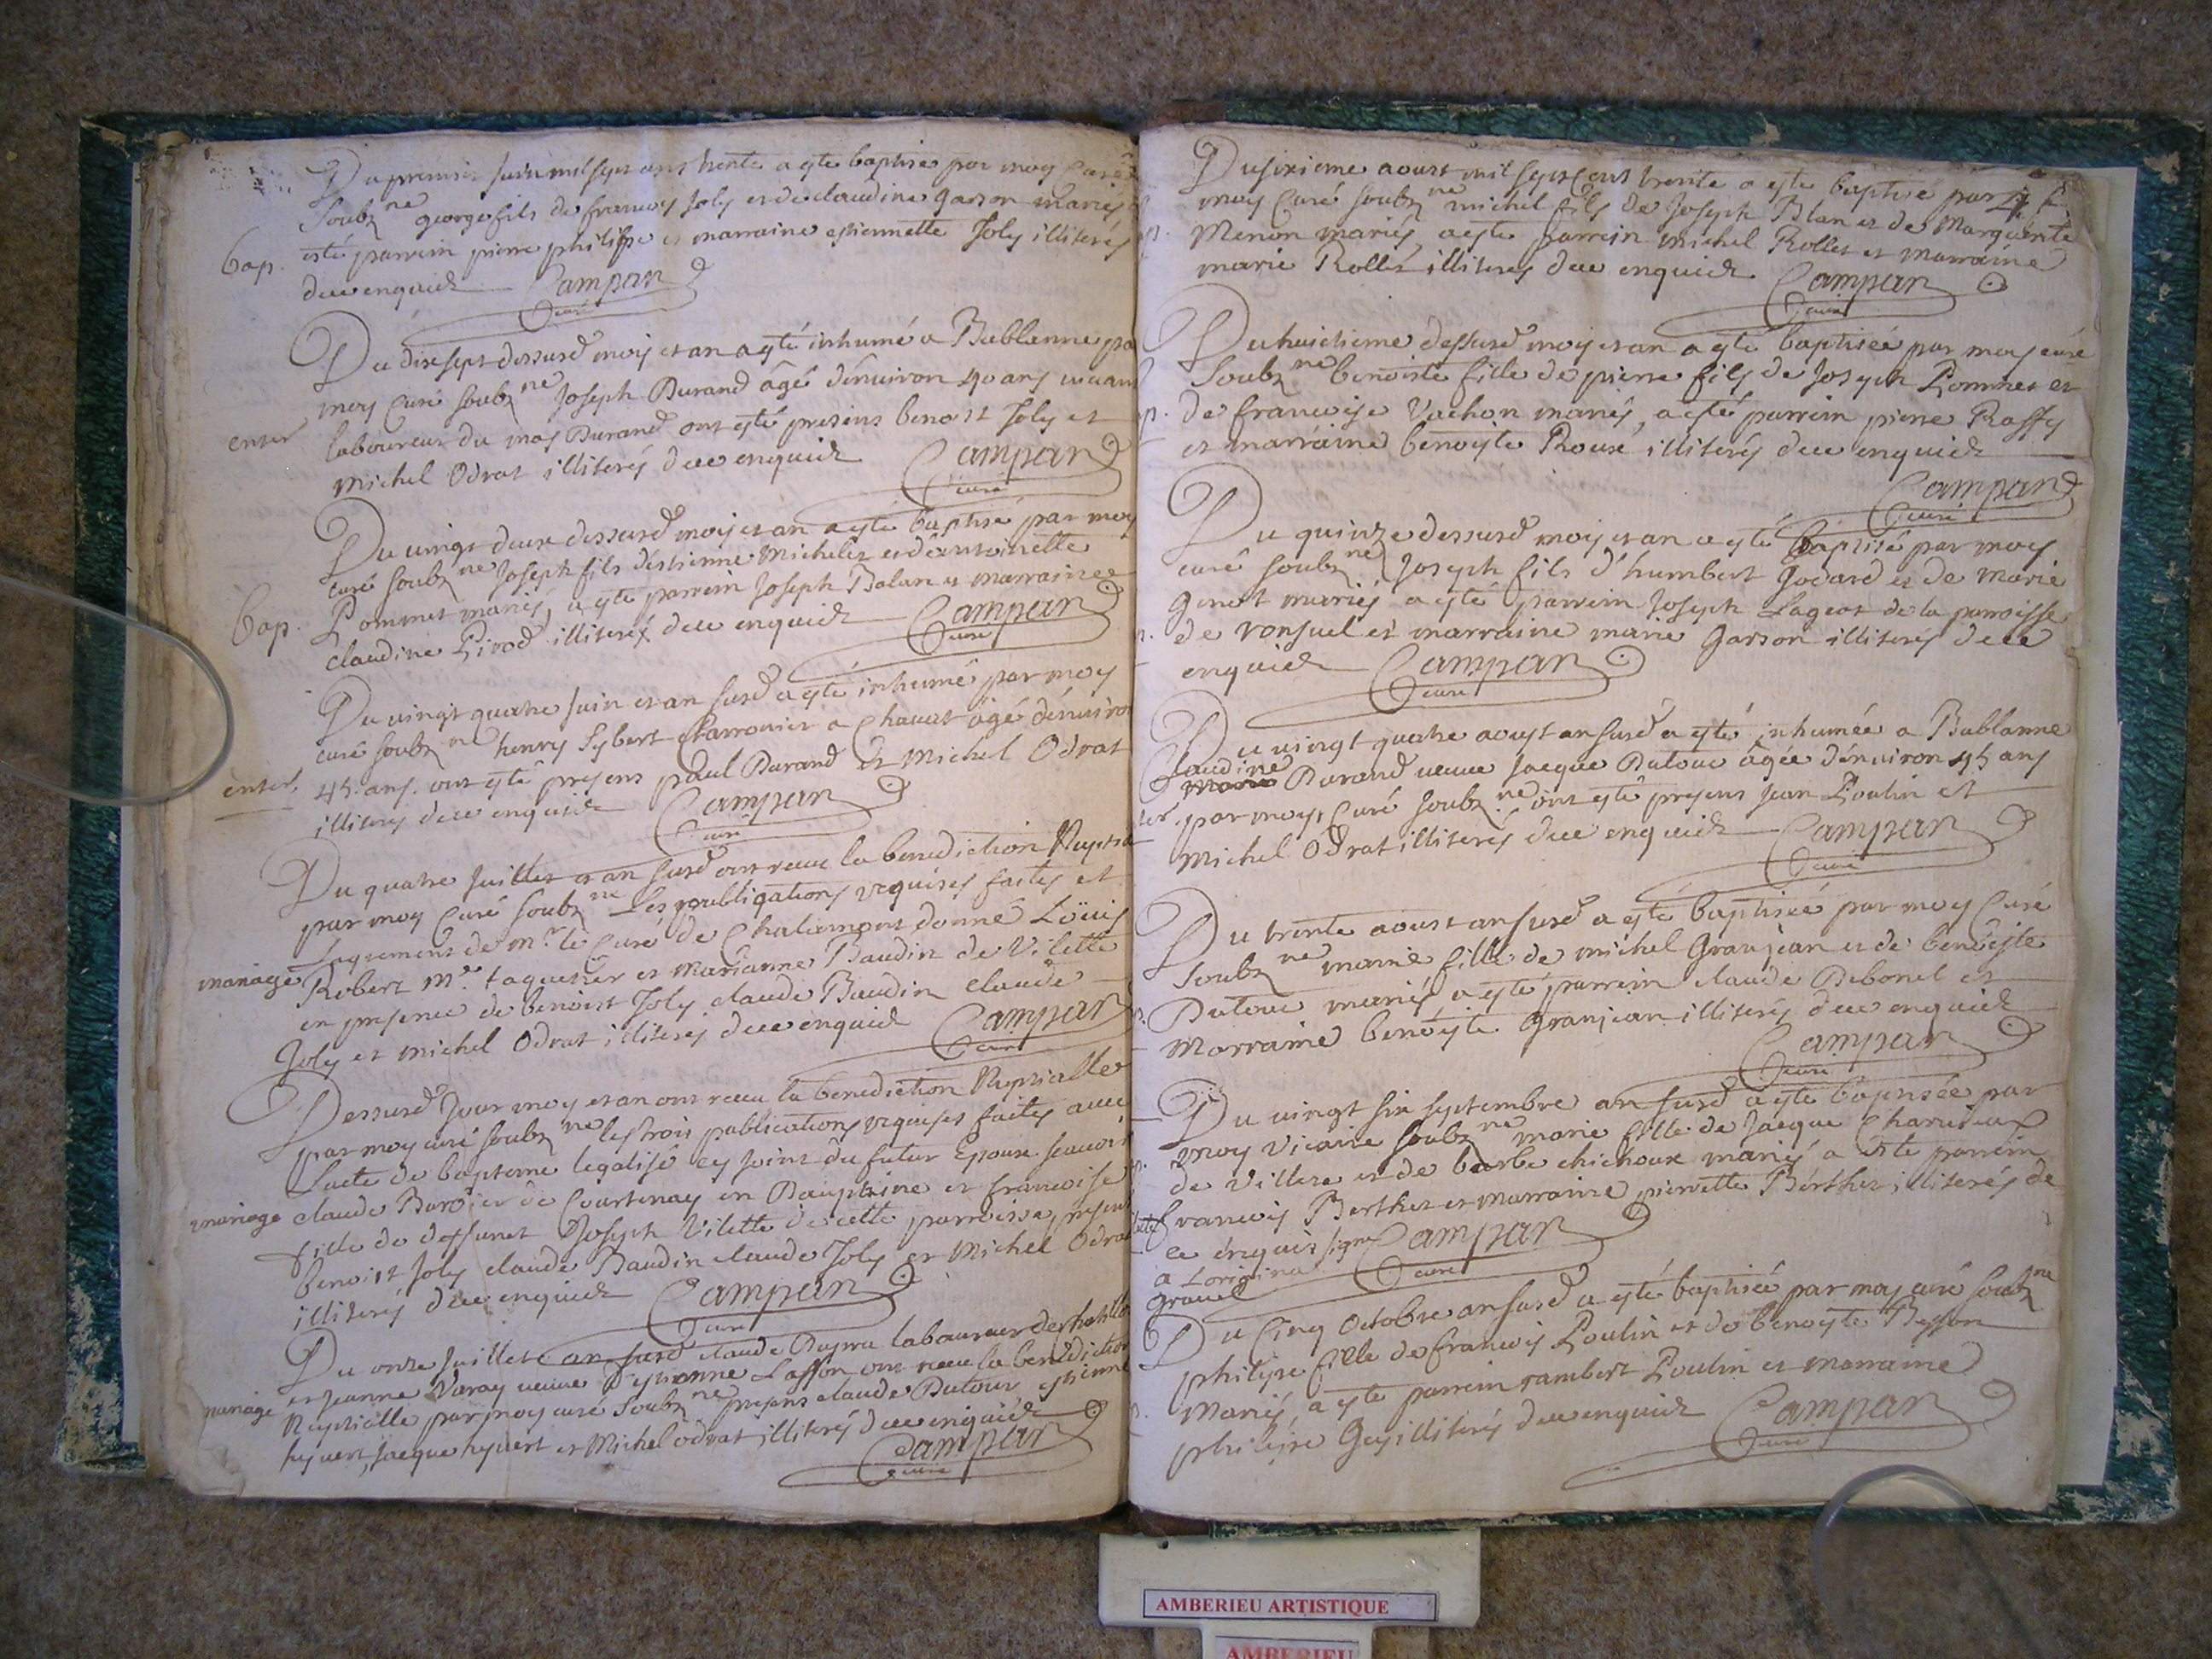 Du premier Juin mil sept cens trente a esté baptisé par moy Curé
Soubz ne george fils de francois Joly et de claudine garson mariés
esté parrein pierre philippe et marraine estiennette Joly illiterés
bap.
de ce enquis Campan
Curé
Du dixsept dessusd mois et an a esté inhumé a Bublanne par
moy Curé soubz ne Joseph Durand âgé d'enuiron 40 ans uiuant
enter
laboureur du mas Durand ont esté presens benoist Joly et
Michel Odrat illiterés de ce enquis Campan
Curé
Du uingt deux dessusd mois et an a esté baptisé par moy
curé soubz ne Joseph fils d'estienne Michelet et d'antoinette
bap.
Pommet mariés, a esté parrein Joseph Balan et marraine
claudine Pirod illiterés de ce enquis Campan
Curé
Du uingt quatre Juin et an susd a esté inhumé par moy
curé soubz ne henry Sybert charronier a Chauat âgé d'enuiron
enter.
45. ans. ont esté presens paul Durand et Michel Odrat
illiterés de ce enquis Campan
Curé
Du quatre Juillet et an susd ont receu la benediction Nuptia
par moy Curé soubz ne Les publications requises faites et
Lagrement de mr. le Curé de Chalamont donné Loüis
mariage
Robert Me. taquetier et Marianne Baudin de Vilette
en presence de benoist Joly claude Baudin claude
Joly et Michel Odrat illiterés de ce enquis Campan
Curé
Dessusd Jour mois et an ont receu la benediction Nuptialle
par moy curé soubz ne les trois publications requises faites auec
Lacte de bapteme legalisé cy joint du futur Epoux scauoir
mariage
claude de Courtenay en Dauphine et francoise
fille de deffunct Joseph Vilette de cette parroisse, presens
benoist Joly claude Baudin claude Joly et Michel Odrat
illiterés de ce enquis Campan
Curé
Du onze Juillet an susd claude Dupra laboureur de
et Jeanne Varay ueuue d'estienne Laffon ont receu la benediction
mariage
Nuptialle par moy curé soubz ne presens claude Dutour estienne
hyuert, Jacque hyuert et Michel odrat illiterés de ce enquis
Campan
Curé
Du sixieme aoust mil sept Cens trente a esté baptisé par
moy Curé soubz ne michel fils de Joseph Blan et de Marguerite
Menon mariés, a esté parrein michel Rollet et marraine
marie Rollet illiterés de ce enquis Campan
Curé
Du huictieme dessusd mois et an a esté baptisée par moy curé
Soubz ne benoiste fille de pierre fils de Joseph Pommet et
de francoise Vachon mariés, a esté parrein pierre Raffy
et marraine benoyste Roux illiterés de ce enquis
Campan
Curé
Du quinze dessusd mois et an a esté baptisé par moy
curé soubz ne Joseph fils d'humbert Godard et de Marie
Genet mariés a esté parrein Joseph Lageat de la parroisse
de ronsuel et marraine marie Garson illiterés de ce
enquis Campan
Curé
Du uingt quatre aoust an susd a esté inhumée a Bublanne
Claudine
Marie Durand ueuue Jacque Dutour âgée d'enuiron 45 ans
par moy Curé soubz ne ont esté presens Jean Poulin et
Michel Odrat illiterés de ce enquis Campan
Curé
Du trente aoust an susd a esté baptisée par moy Curé
Soubz ne marie fille de michel Granjean et de benoiste
Dutour mariés a esté parrein claude Debonet et
Marraine benoiste Granjean illiterés de ce enquis
Campan
Curé
Du uingt six septembre an susd a esté baptisée par
moy Vicaire soubz ne marie fille de Jacque Charuieux
de Villete et de barbe chichoux mariés a este parrein
francois Berthet et marraine pierrette Berthet illiterés de
ce enquis signé Campan
a Lorigina
Grauel
Curé
Du Cinq Octobre an susd a esté baptisée par moy curé soubz ne
philippe fille de francois Poulin et de benoyste Besson
Mariés, a esté parrein rambert Poulin et marraine
philippe Gey illiterés de ce enquis Campan
Curé
AMBERIEU ARTISTIQUE
AMBERIEU